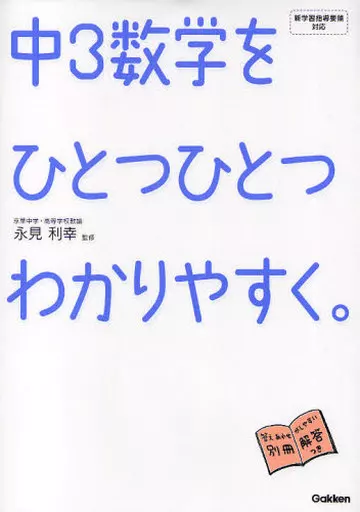 中3数学を
新学習指導要領
対応
ひとつひとつ
京華中学・高等学校教諭
永見 利幸 監修
わかりやすく。
答えあわせがしやすい
別冊解答
つき
Gakken